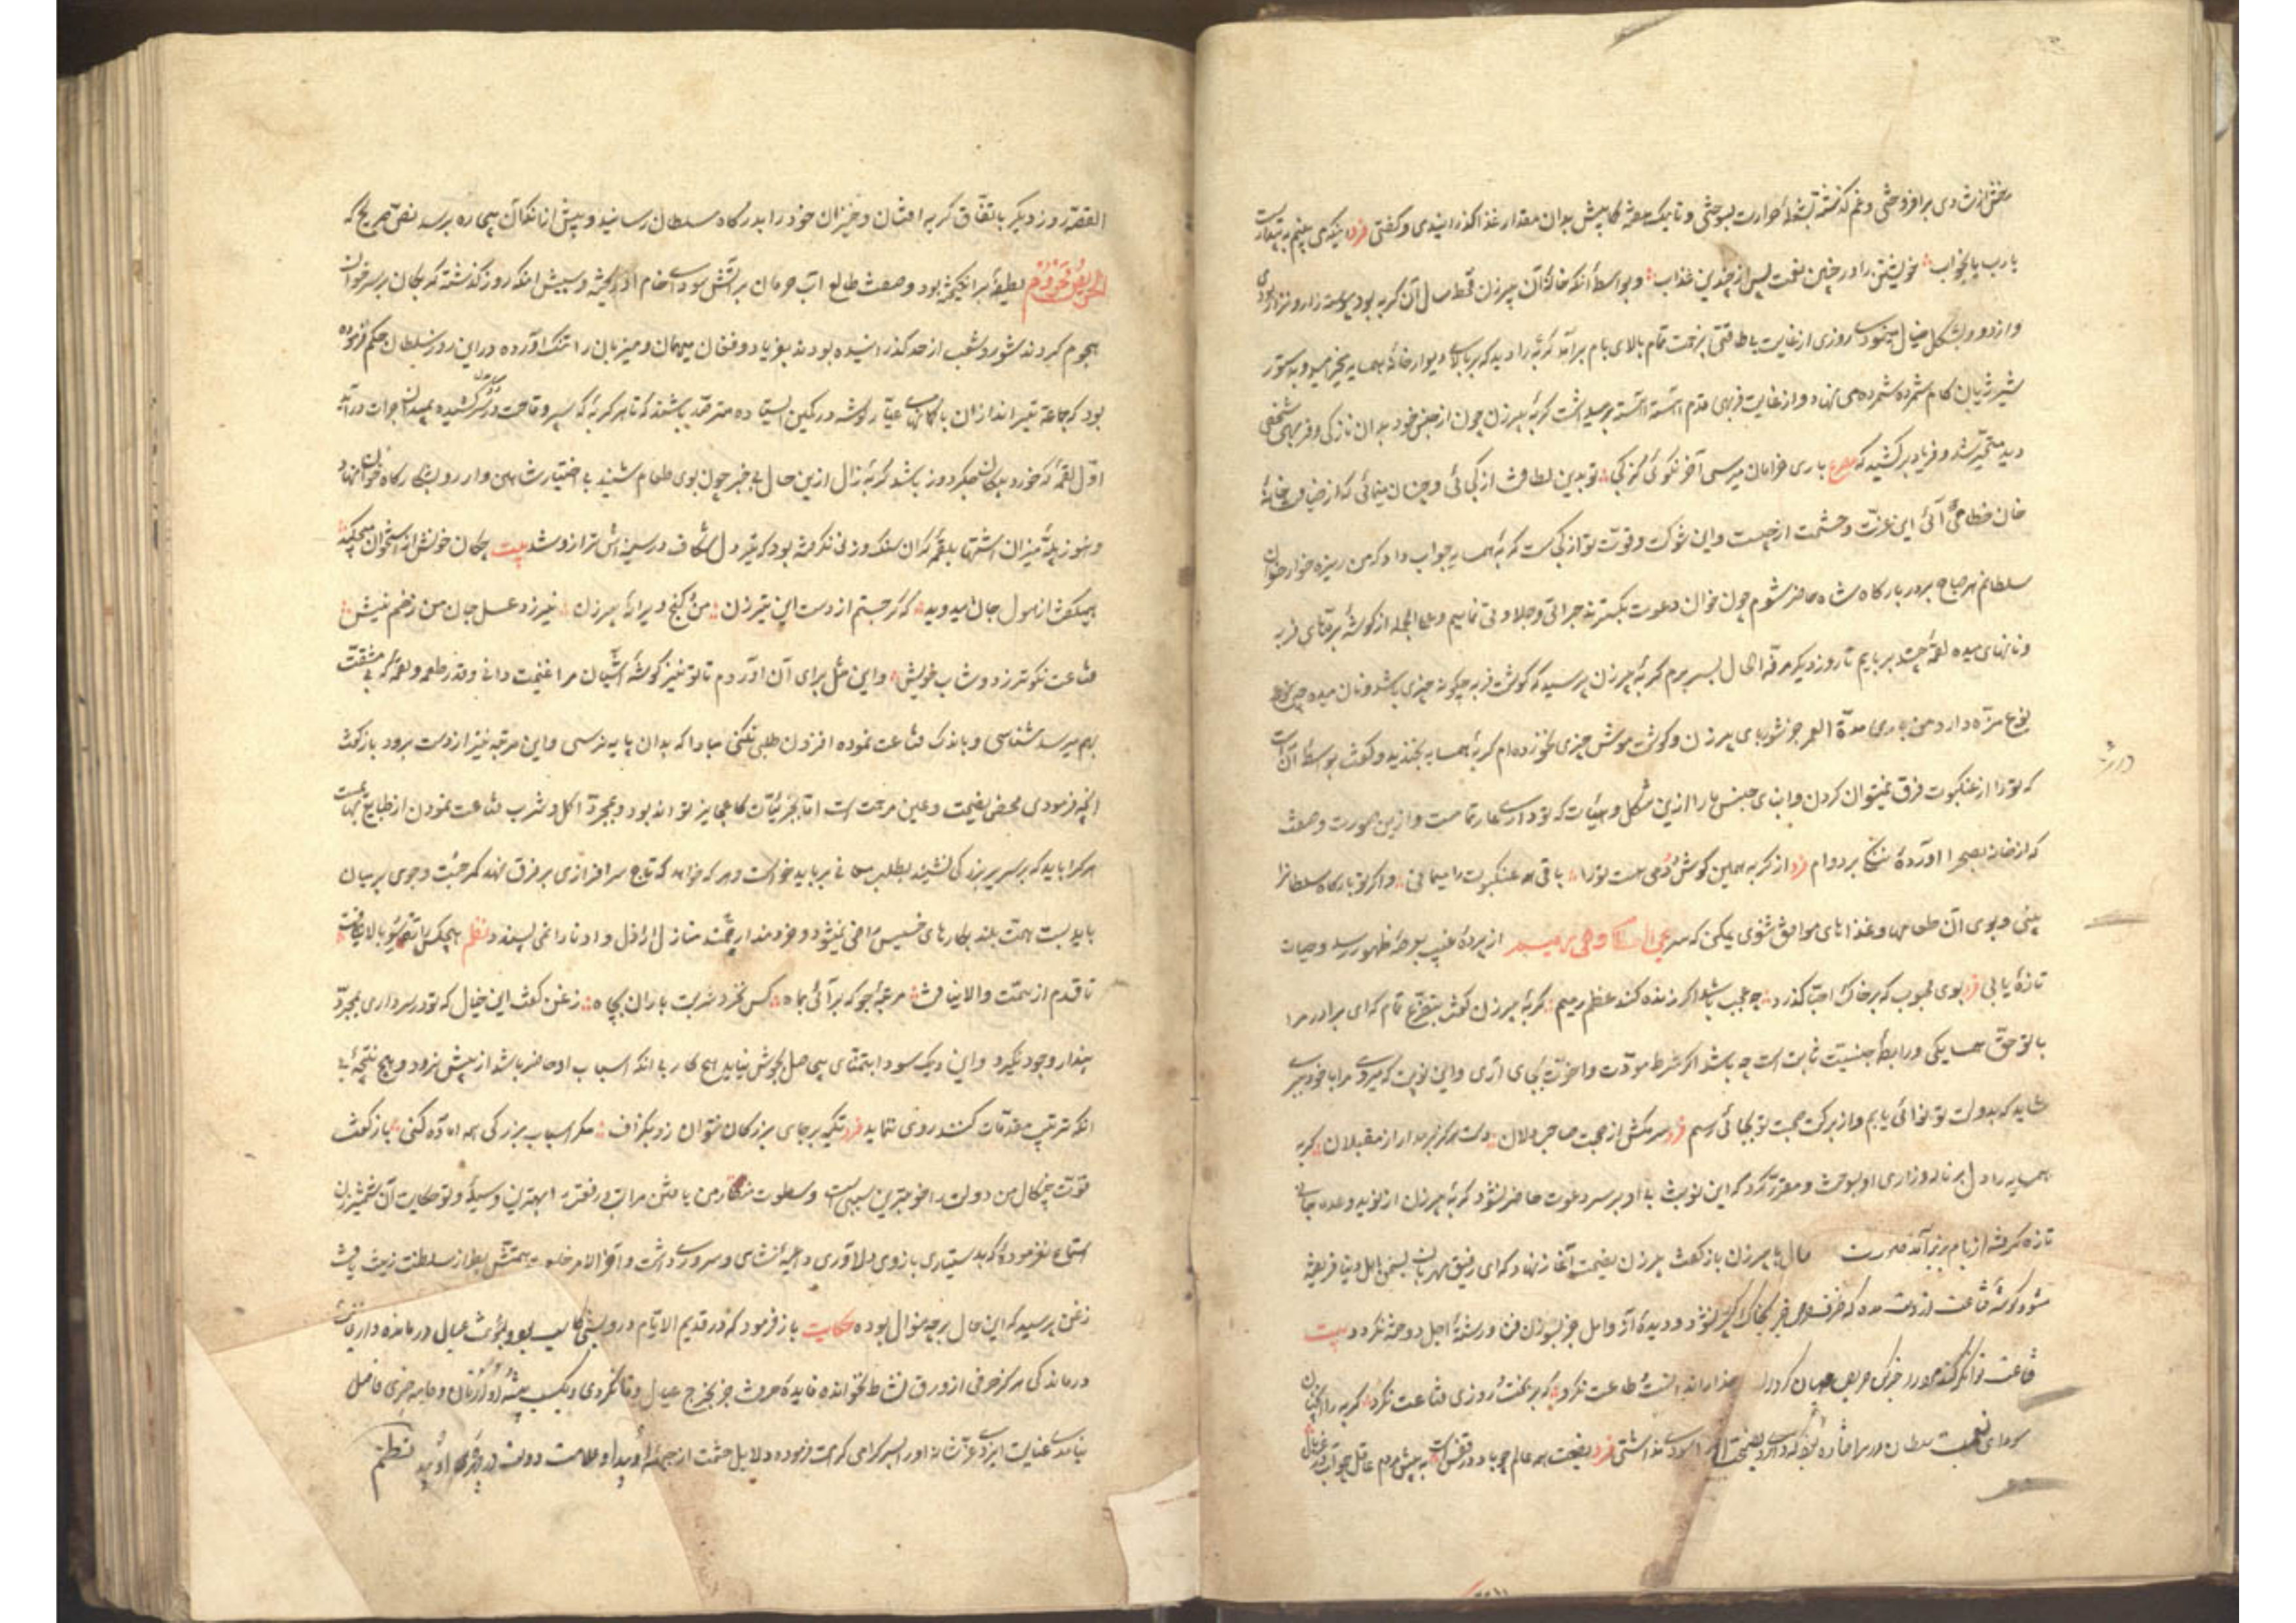 رخش از شادی برافروختی و غم گذشته بشعلهٔ حرارت بسوختی و تا یک هفته کمابیش بدان مقدار غذا گذرانیدی و گفتی فرد اینکه می بینم به بیداریست
یارب یا بخواب خویشتن را در چنین نعمت پس از چندین عذاب و بواسطهٔ آنکه خانهٔ آن پیرزن قحط سال آن گربه بود پیوسته زار و نزار بودی
و از دور بشکل خیالی نمودی روزی از غایت بی طاقتی بزحمت تمام بالای بام برآمد گربهٔ را دید که بر بالای دیوار خانهٔ همسایه میخرامید و بدستور
شیر ژیان گام شمرده شمرده می نهاد و از غایت فربهی قدم آهسته آهسته برمیداشت گربهٔ پیرزن چون از جنس خود بدان تازگی و فربهی شخصی
دید متحیر شد و فریاد برکشید که مصرع باری خرامان میرسی آخر نگوئی از کجا تو بدین لطافت از کجائی و چنان مینمائی که از ضیافتخانهٔ
خان خطا می آئی این عزت و حشمت از چیست و این شوکت و قوت تو از کجاست گربهٔ همسایه جواب داد که من ریزه خوار خوان
سلطانم هر صباح بر در بارگاه شاه حاضر شوم چون خوان دعوت بگسترند جراتی و جلادتی نمایم و علی الجمله از گوشتهای فربه
و نانهای میده لقمهٔ چند بربایم تا روز دیگر مرفه الحال بسر برم گربهٔ پیرزن پرسید که گوشت فربه چگونه چیزی باشد و نان میده چه
نوع مزه دارد من باری مدة العمر جز شوربای پیرزن و گوشت موش چیزی نخورده ام گربهٔ همسایه بخندید و گفت بواسطهٔ آنست
که ترا از عنکبوت فرق نمیتوان کردن و ابنای جنس ما را ازین شکل و هیئات که تو داری عار تمامست و ازین صورت و صفت
که از خانه بصحرا آوردهٔ ننگ بر دوام فرد از گربه همین گوش و دمی هست ترا باقی همه عنکبوت را میمانی و اگر تو بارگاه سلطانرا
بینی و بوی آن طعامها و غذاهای موافق شنوی یمکن که سر یحیی العظام وهی رمیم از پردهٔ غیب بعرصهٔ ظهور رسد و حیات
تازهٔ یابی فرد بوی محبوب که بر خاک احبا گذرد چه عجب باشد اگر زنده کند عظم رمیم گربهٔ پیرزن گفت بتضرع تمام که ای برادر مرا
با تو حق همسایگی و رابطهٔ جنسیت ثابت است چه باشد اگر شرط مودت و اخوت بجای آری و این نوبت که میروی مرا با خود ببری
شاید که بدولت تو نوائی یابم و از برکت صحبت تو بجائی رسم فرد سر مکش از صحبت صاحب دلان دست مگیر مدار از مقبلان گربهٔ
همسایه را دل بر ناله و زاری او بسوخت و مقرر کرد که این نوبت بی او بر سر دعوت حاضر نشود گربهٔ پیرزن از نوید وعده جانی
تازه گرفته از بام بزیر آمد صورت حال با پیرزن بازگفت پیرزن نصیحت آغاز نهاد که ای رفیق مهربان بسخن اهل دنیا فریفته
مشو و گوشهٔ قناعت از دست مده که ظرف حرص جز بخاک گور پر نشود و دیدهٔ آز و امل جز بسوزن فنا و رشتهٔ اجل دوخته نگردد بیت
قناعت توانگر کند مرد را خبر کن حریص جهان گرد را خدا را ندانست و طاعت نکرد که بر بخت و روزی قناعت نکرد گربه را آنچنان
سودای نعمت سلطان در سر افتاده بود که داروی نصیحت او را سودی نداشتی فرد نصیحت همه عالم چو باد در قفس است به پیش مردم عاشق چو آب در غربال
القصه روز دیگر باتفاق گربه افتان و خیزان خود را بدرگاه سلطان رسانید و پیش از آنکه آن بیچاره برسد نص صریح که
الحریص محروم لطیفهٔ برانگیخته بود و ضعف طالع آب حرمان بر آتش سودای خام او ریخته و سببش آنکه روز گذشته گربگان بر سر خوان
هجوم کردند شور و شغب از حد گذرانیده بودند بفریاد و فغان میهمان و میزبان را تنگ آورده در این روز سلطان حکم فرموده
بود که جماعت تیراندازان با کمانهای عیار در گوشه در کمین ایستاده مترصد باشند که تا هر گربهٔ که سپر وقاحت در سر کشیده بمیدان جرات درآید
اول لقمهٔ که خورد پیکان جگردوز باشد گربهٔ زال ازین حال بی خبر چون بوی طعام شنید بی اختیار شاهین وار رو بشکارگاه خوان نهاد
و هنوز پلهٔ میزان اشتها بلقمهٔ گران سنگ وزنی نگرفته بود که تیر دل شکاف در سینه اش ترازو شد بیت چکان خونش از استخوان میچکید
همیگفت از هول جان میدوید که گر جستم از دست این تیرزن من و کنج ویرانهٔ پیرزن نیرزد عسل جان من زخم نیش
قناعت نکوتر ز دوشاب خویش و این مثل برای آن آوردم تا تو نیز گوشهٔ آشیان مرا غنیمت دانی و قدر طعمه و لقمهٔ که بی مشقت
بهم میرسد شناسی و باندک قناعت نموده افزون طلبی نکنی مبادا که بدان پایه نرسی و این مرتبه نیز از دست برود باز گفت
آنچه فرمودی محض نصیحت و عین مرحمت است اما بجزئیات کار عجایز تواند بود و بمجرد اکل و شرب قناعت نمودن از طبایع بهایم است
هر کرا باید که بر سریر بزرگی نشیند بطلب معانی برباید خواست و هر که خواهد که تاج سرافرازی بر فرق نهد کمر جست و جوی بر میان
باید بست همت بلند بکارهای خسیس راضی نمیشود و خردمند ارجمند منازل اراذل و ادنا را نمی پسندد نظم هیچکس را نتوان سوی بالا نیافت
تا قدم از همت والا نیافت مرتبهٔ جو که برآئی بماه کس نخرد شربت باران بچاه زغن گفت این خیال که تو در سر داری بمجرد
پندار وجود نگیرد و این دیگ سودا بتمنای بیحاصل بجوش نیاید هیچ کار بی آنکه اسباب او حاضر باشد از پیش نرود و هیچ نتیجهٔ بی
آنکه ترتیب مقدمات کنند روی ننماید فرد تکیه بر جای بزرگان نتوان زد بگزاف مگر اسباب بزرگی همه آماده کنی باز گفت
قوت چنگال من دولت را خوبترین سببی است و سطوت منقار من یافتن مراتب رفعت را بهترین وسیلهٔ و تو حکایت آن شمشیرزن
استماع نفرمودهٔ که بدستیاری بازوی دلاوری داعیهٔ شاهی و سروری داشت و آخر الامر خلعت همتش بطراز سلطنت زینت یافت
زغن پرسید که این حال بر چه منوال بوده حکایت باز فرمود که در قدیم الایام درویشی کاسب بود و بمؤنت عیال درمانده دار فنا
درماندگی هرگز حرفی از ورق نشاط نخوانده فایدهٔ حرفتش جز بخرج عیال وفا نکردی و بکسب پیشه او را از نان و جامه چیزی فاضل
نیامدی عنایت ایزدی عز شانه او را پسر گرامی کرامت فرموده دلایل حشمت از جبههٔ او پیدا و علامت دولت در چهرهٔ او هویدا نظم